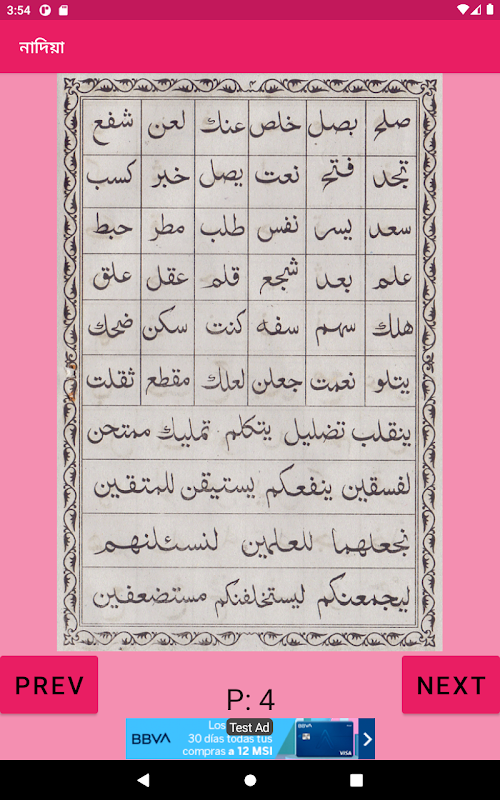 3:54
নাদিয়া
صلح بصل خلص عنك لعن شفع
تجد فتح نعت يصل خبر كسب
سعد يسر نفس طلب مطر حبط
علم بعد شجع قلم عقل علق
هلك سهم سفه كنت سكن ضحك
يتلو نعمت جعلن لعلك مقطع ثقلت
ينقلب تضليل يتكلم تمليك ممتحن
لفسقين ينفعكم يستيقن للمتقين
نجعلهما للعلمين لنسئلنهم
ليجمعنكم ليستخلفنكم مستضعفين
PREV
P: 4
NEXT
BBVA
Los
30 días todas tus
compras a 12 MSI
Test Ad
BBVA
VISA